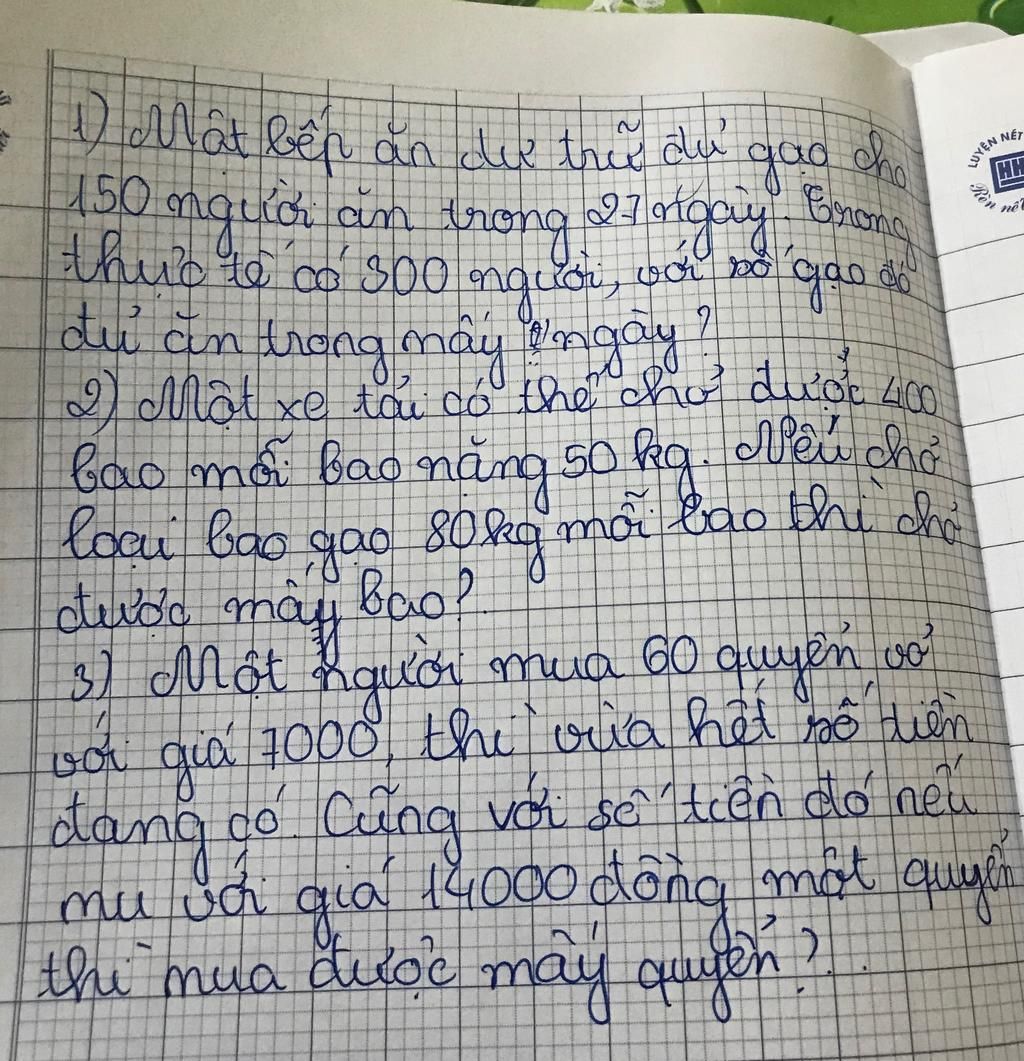 1) Một bếp ăn dự trữ đủ gạo cho
150 người ăn trong 27 ngày. Trong
thực tế có 300 người, với số gạo đó
đủ ăn trong mấy ngày?
2) Một xe tải có thể chở được 400
bao mỗi bao nặng 50 kg. Nếu chở
loại bao gạo 80kg mỗi bao thì chở
được mấy bao?
3) Một người mua 60 quyển vở
với giá 7000, thì vừa hết số tiền
đang có. Cũng với số tiền đó nếu
mu với giá 14000 đồng một quyển
thì mua được mấy quyển?
LUYỆN NÉT
HH
Rèn nết